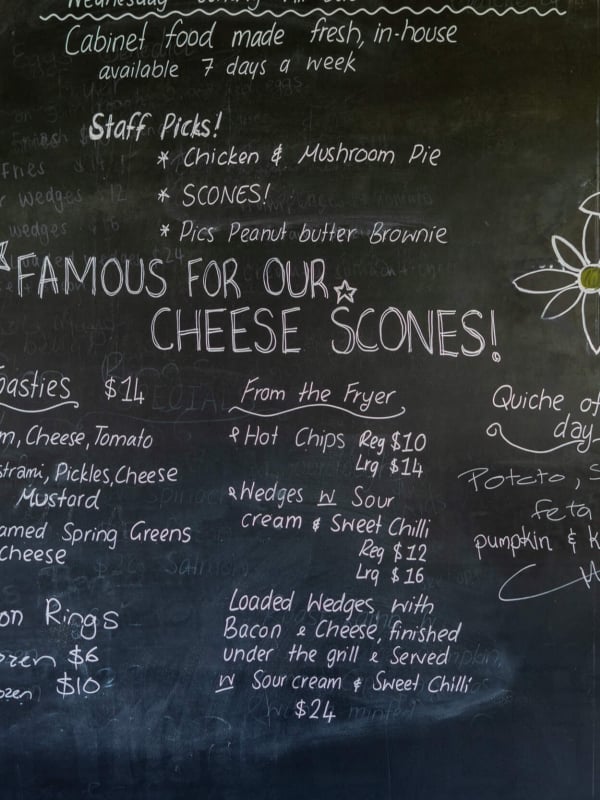 Wednesday
Cabinet food made fresh, in-house
available 7 days a week
Staff Picks!
* Chicken & Mushroom Pie
* SCONES!
* Pics Peanut butter Brownie
FAMOUS FOR OUR
CHEESE SCONES!
oasties $14
m, Cheese, Tomato
strami, Pickles, Cheese
Mustard
amed Spring Greens
Cheese
on Rings
ozen $6
ozen $10
From the Fryer
& Hot Chips Reg $10
Lrg $14
& Wedges w Sour
cream & Sweet Chilli
Reg $12
Lrg $16
Loaded Wedges, with
Bacon & Cheese, finished
under the grill & Served
w Sour cream & Sweet Chilli
$24
Quiche of
day
Potato, S
feta
pumpkin & K